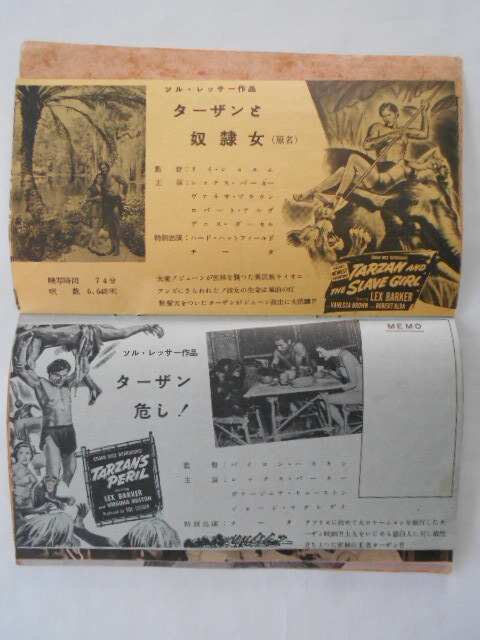 ソル・レッサー作品
ターザンと
奴隷女(原名)
監督:リイ・ショレム
主演:レックス・バーカー
ヴァネサ・ブラウン
ロバート・アルダ
デニス・ダーセル
特別出演:ハード・ハットフィールド
チータ
映写時間 74分
呎数 6,648呎
EDGAR RICE BURROUGHS'
TARZAN AND
THE SLAVE GIRL
starring
LEX BARKER
VANESSA BROWN ROBERT ALDA
MEMO
ソル・レッサー作品
ターザン
危し!
EDGAR RICE BURROUGHS'
TARZAN'S
PERIL
starring
LEX BARKER
and VIRGINIA HUSTON
Produced by SOL LESSER
監督:バイロン・ハスキン
主演:レックス・バーカー
ヴァージニヤ・ヒューストン
ジョージ・マクレディ
特別出演:チータ